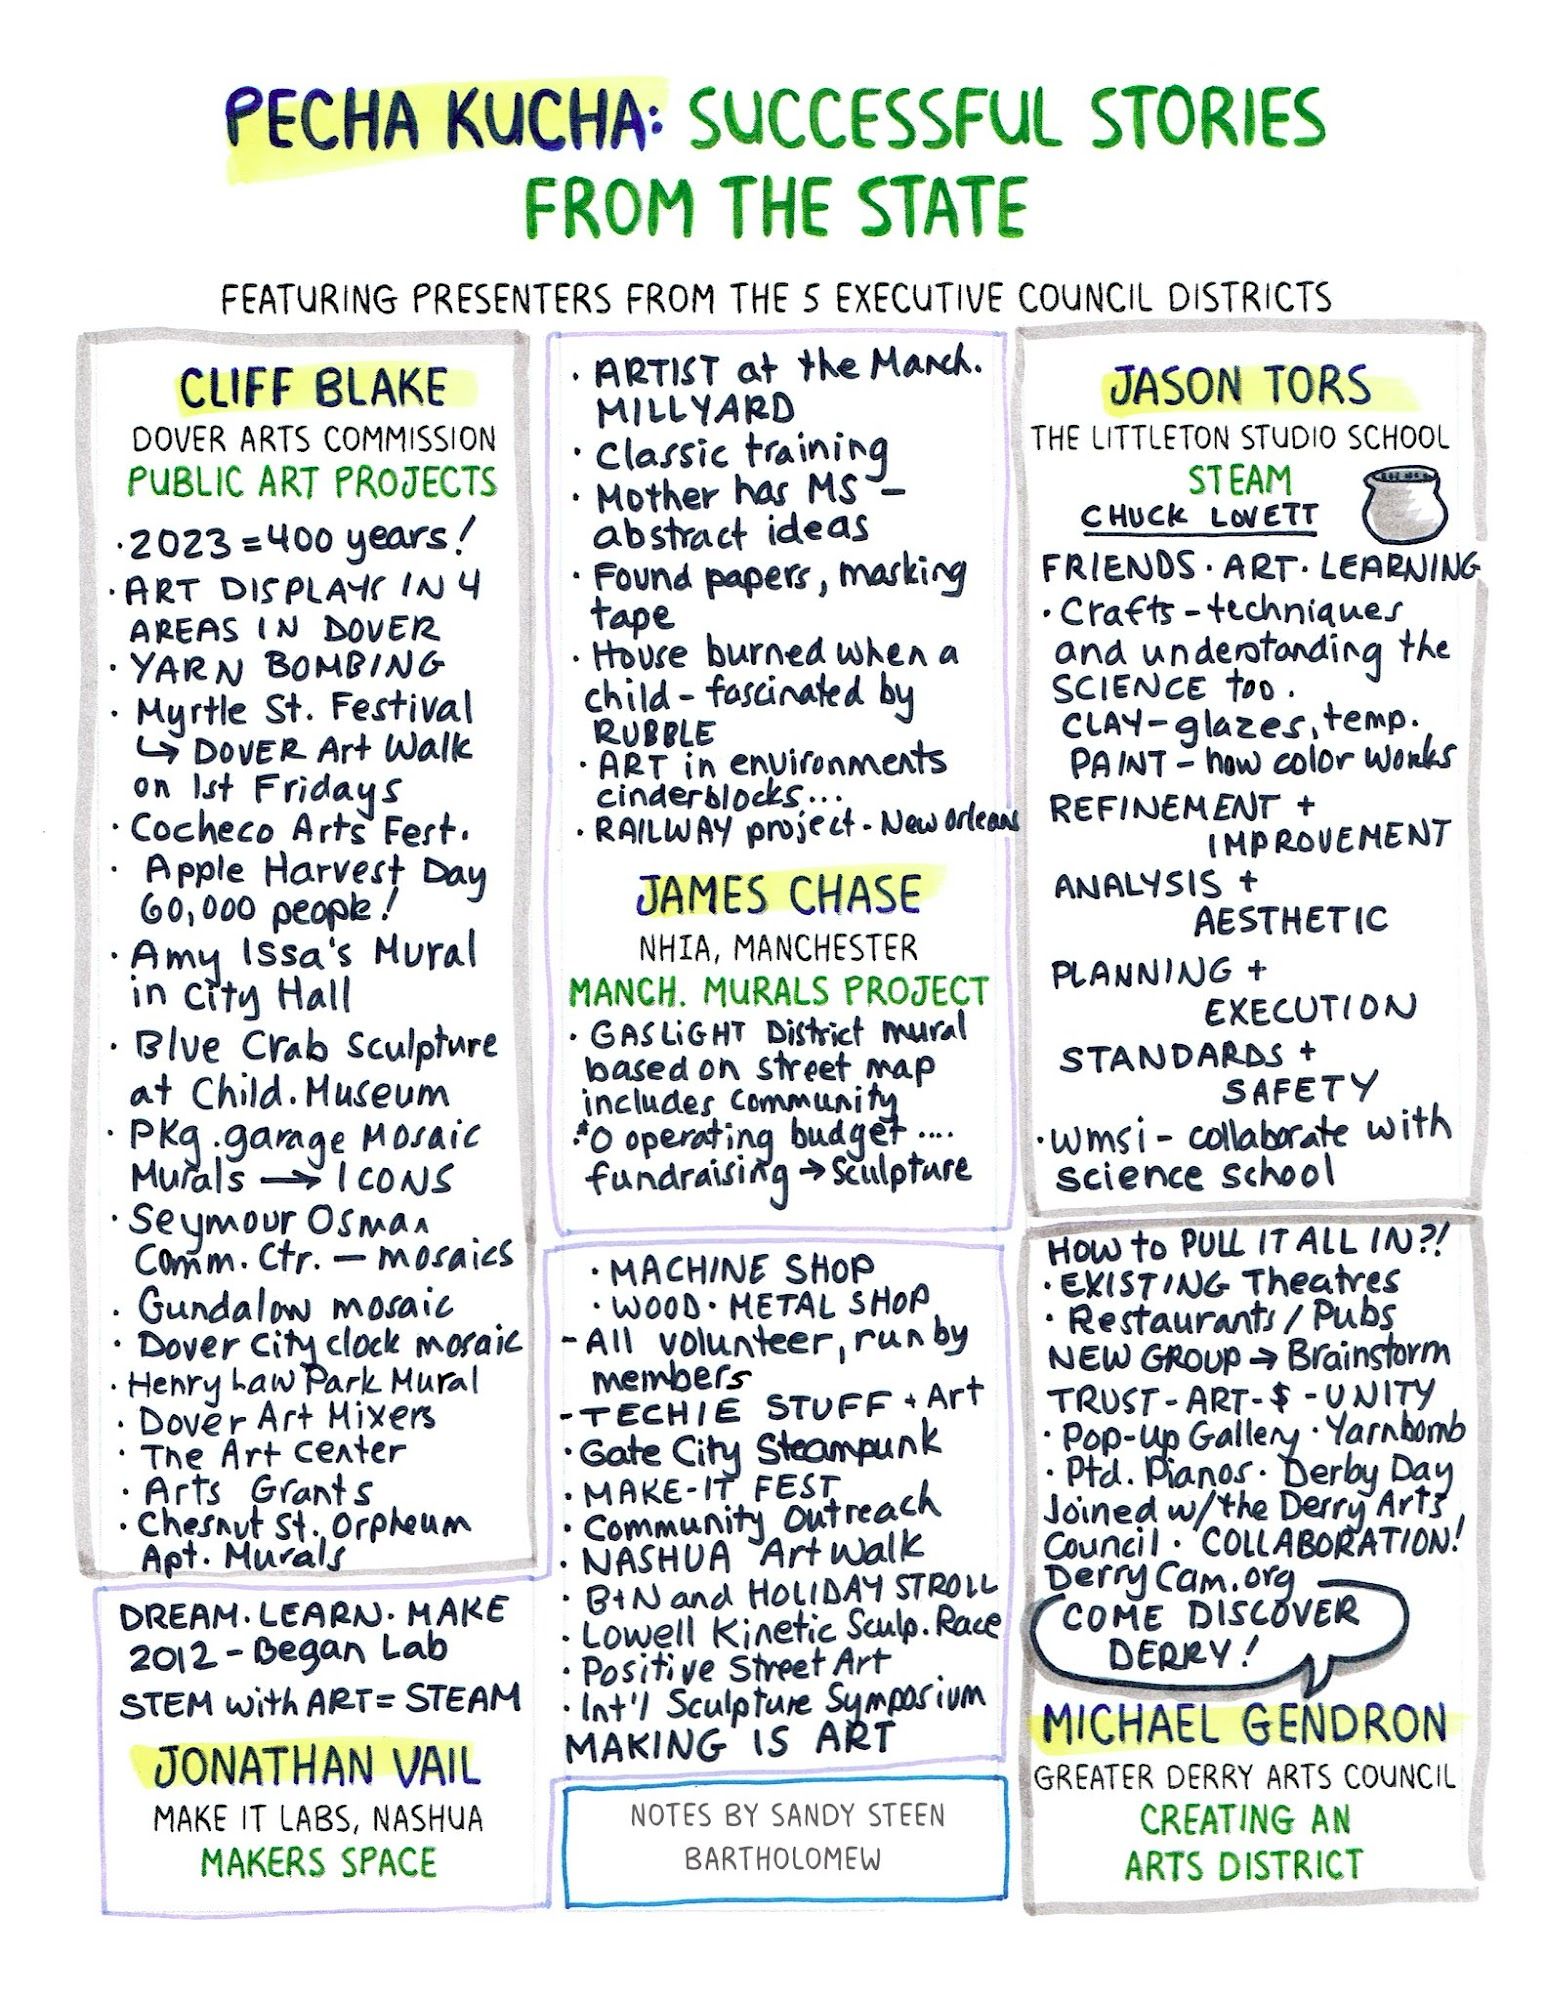 PECHA KUCHA: SUCCESSFUL STORIES
FROM THE STATE
FEATURING PRESENTERS FROM THE 5 EXECUTIVE COUNCIL DISTRICTS
CLIFF BLAKE
DOVER ARTS COMMISSION
PUBLIC ART PROJECTS
· 2023 = 400 years!
· ART DISPLAYS IN 4
AREAS IN DOVER
· YARN BOMBING
· Myrtle St. Festival
↳ DOVER Art Walk
on 1st Fridays
· Cocheco Arts Fest.
· Apple Harvest Day
60,000 people!
· Amy Issa's Mural
in City Hall
· Blue Crab Sculpture
at Child. Museum
· Pkg. garage Mosaic
Murals → ICONS
· Seymour Osman
Comm. Ctr. — mosaics
· Gundalow mosaic
· Dover City clock mosaic
· Henry Law Park Mural
· Dover Art Mixers
· The Art Center
· Arts Grants
· Chesnut St. Orpheum
Apt. Murals
DREAM. LEARN. MAKE
2012 - Began Lab
STEM with ART = STEAM
JONATHAN VAIL
MAKE IT LABS, NASHUA
MAKERS SPACE
· ARTIST at the Manch.
MILLYARD
· Classic training
· Mother has MS –
abstract ideas
· Found papers, masking
tape
· House burned when a
child - fascinated by
RUBBLE
· ART in environments
cinderblocks...
· RAILWAY project - New Orleans
JAMES CHASE
NHIA, MANCHESTER
MANCH. MURALS PROJECT
· GASLIGHT District mural
based on street map
includes community
· $0 operating budget ....
fundraising → Sculpture
· MACHINE SHOP
· WOOD · METAL SHOP
- All volunteer, run by
members
- TECHIE STUFF + Art
· Gate City Steampunk
· MAKE-IT FEST
· Community Outreach
· NASHUA Art Walk
· B+N and HOLIDAY STROLL
· Lowell Kinetic Sculp. Race
· Positive Street Art
· Int'l Sculpture Symposium
MAKING IS ART
NOTES BY SANDY STEEN
BARTHOLOMEW
JASON TORS
THE LITTLETON STUDIO SCHOOL
STEAM
CHUCK LOVETT
FRIENDS · ART · LEARNING
· Crafts - techniques
and understanding the
SCIENCE too.
CLAY - glazes, temp.
PAINT - how color works
REFINEMENT +
IMPROVEMENT
ANALYSIS +
AESTHETIC
PLANNING +
EXECUTION
STANDARDS +
SAFETY
· wmsi - collaborate with
science school
HOW to PULL IT ALL IN?!
· EXISTING Theatres
· Restaurants / Pubs
NEW GROUP → Brainstorm
TRUST - ART - $ - UNITY
· Pop-up Gallery · Yarnbomb
· Ptd. Pianos · Derby Day
Joined w/ the Derry Arts
Council · COLLABORATION!
DerryCam.org
COME DISCOVER
DERRY!
MICHAEL GENDRON
GREATER DERRY ARTS COUNCIL
CREATING AN
ARTS DISTRICT